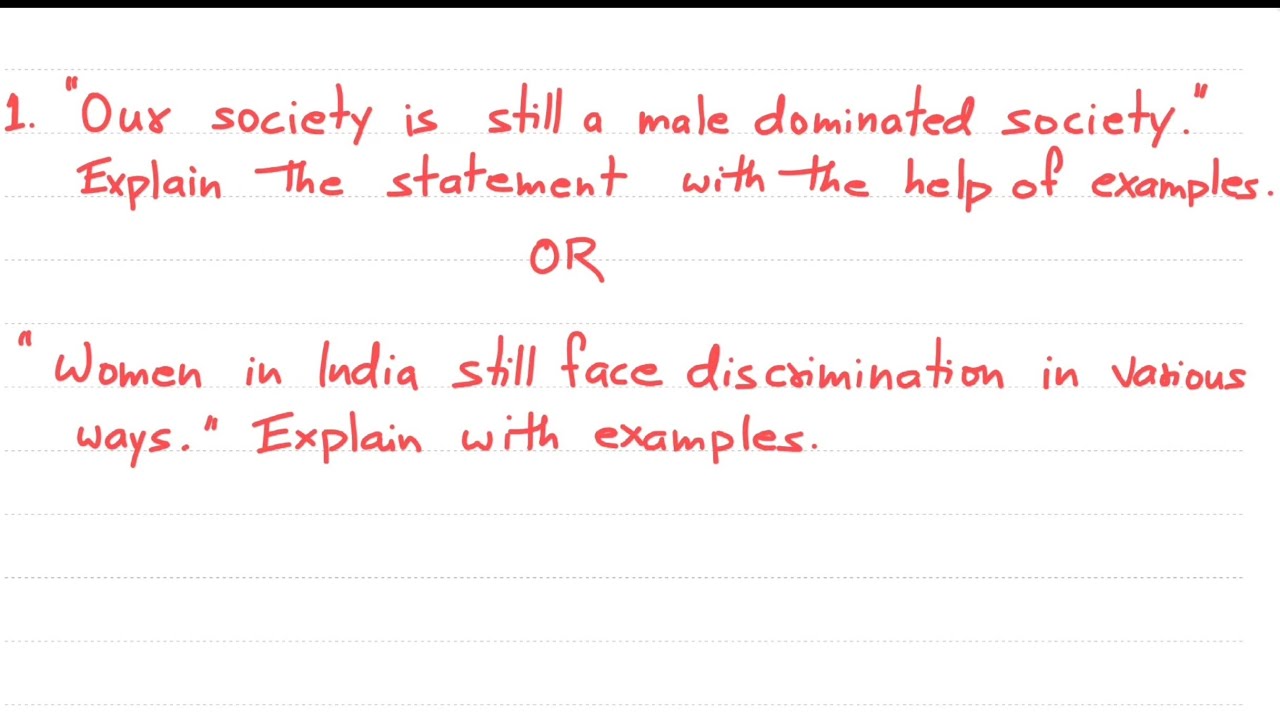 1. "Our society is still a male dominated society."
Explain the statement with the help of examples.
OR
"Women in India still face discrimination in various
ways." Explain with examples.